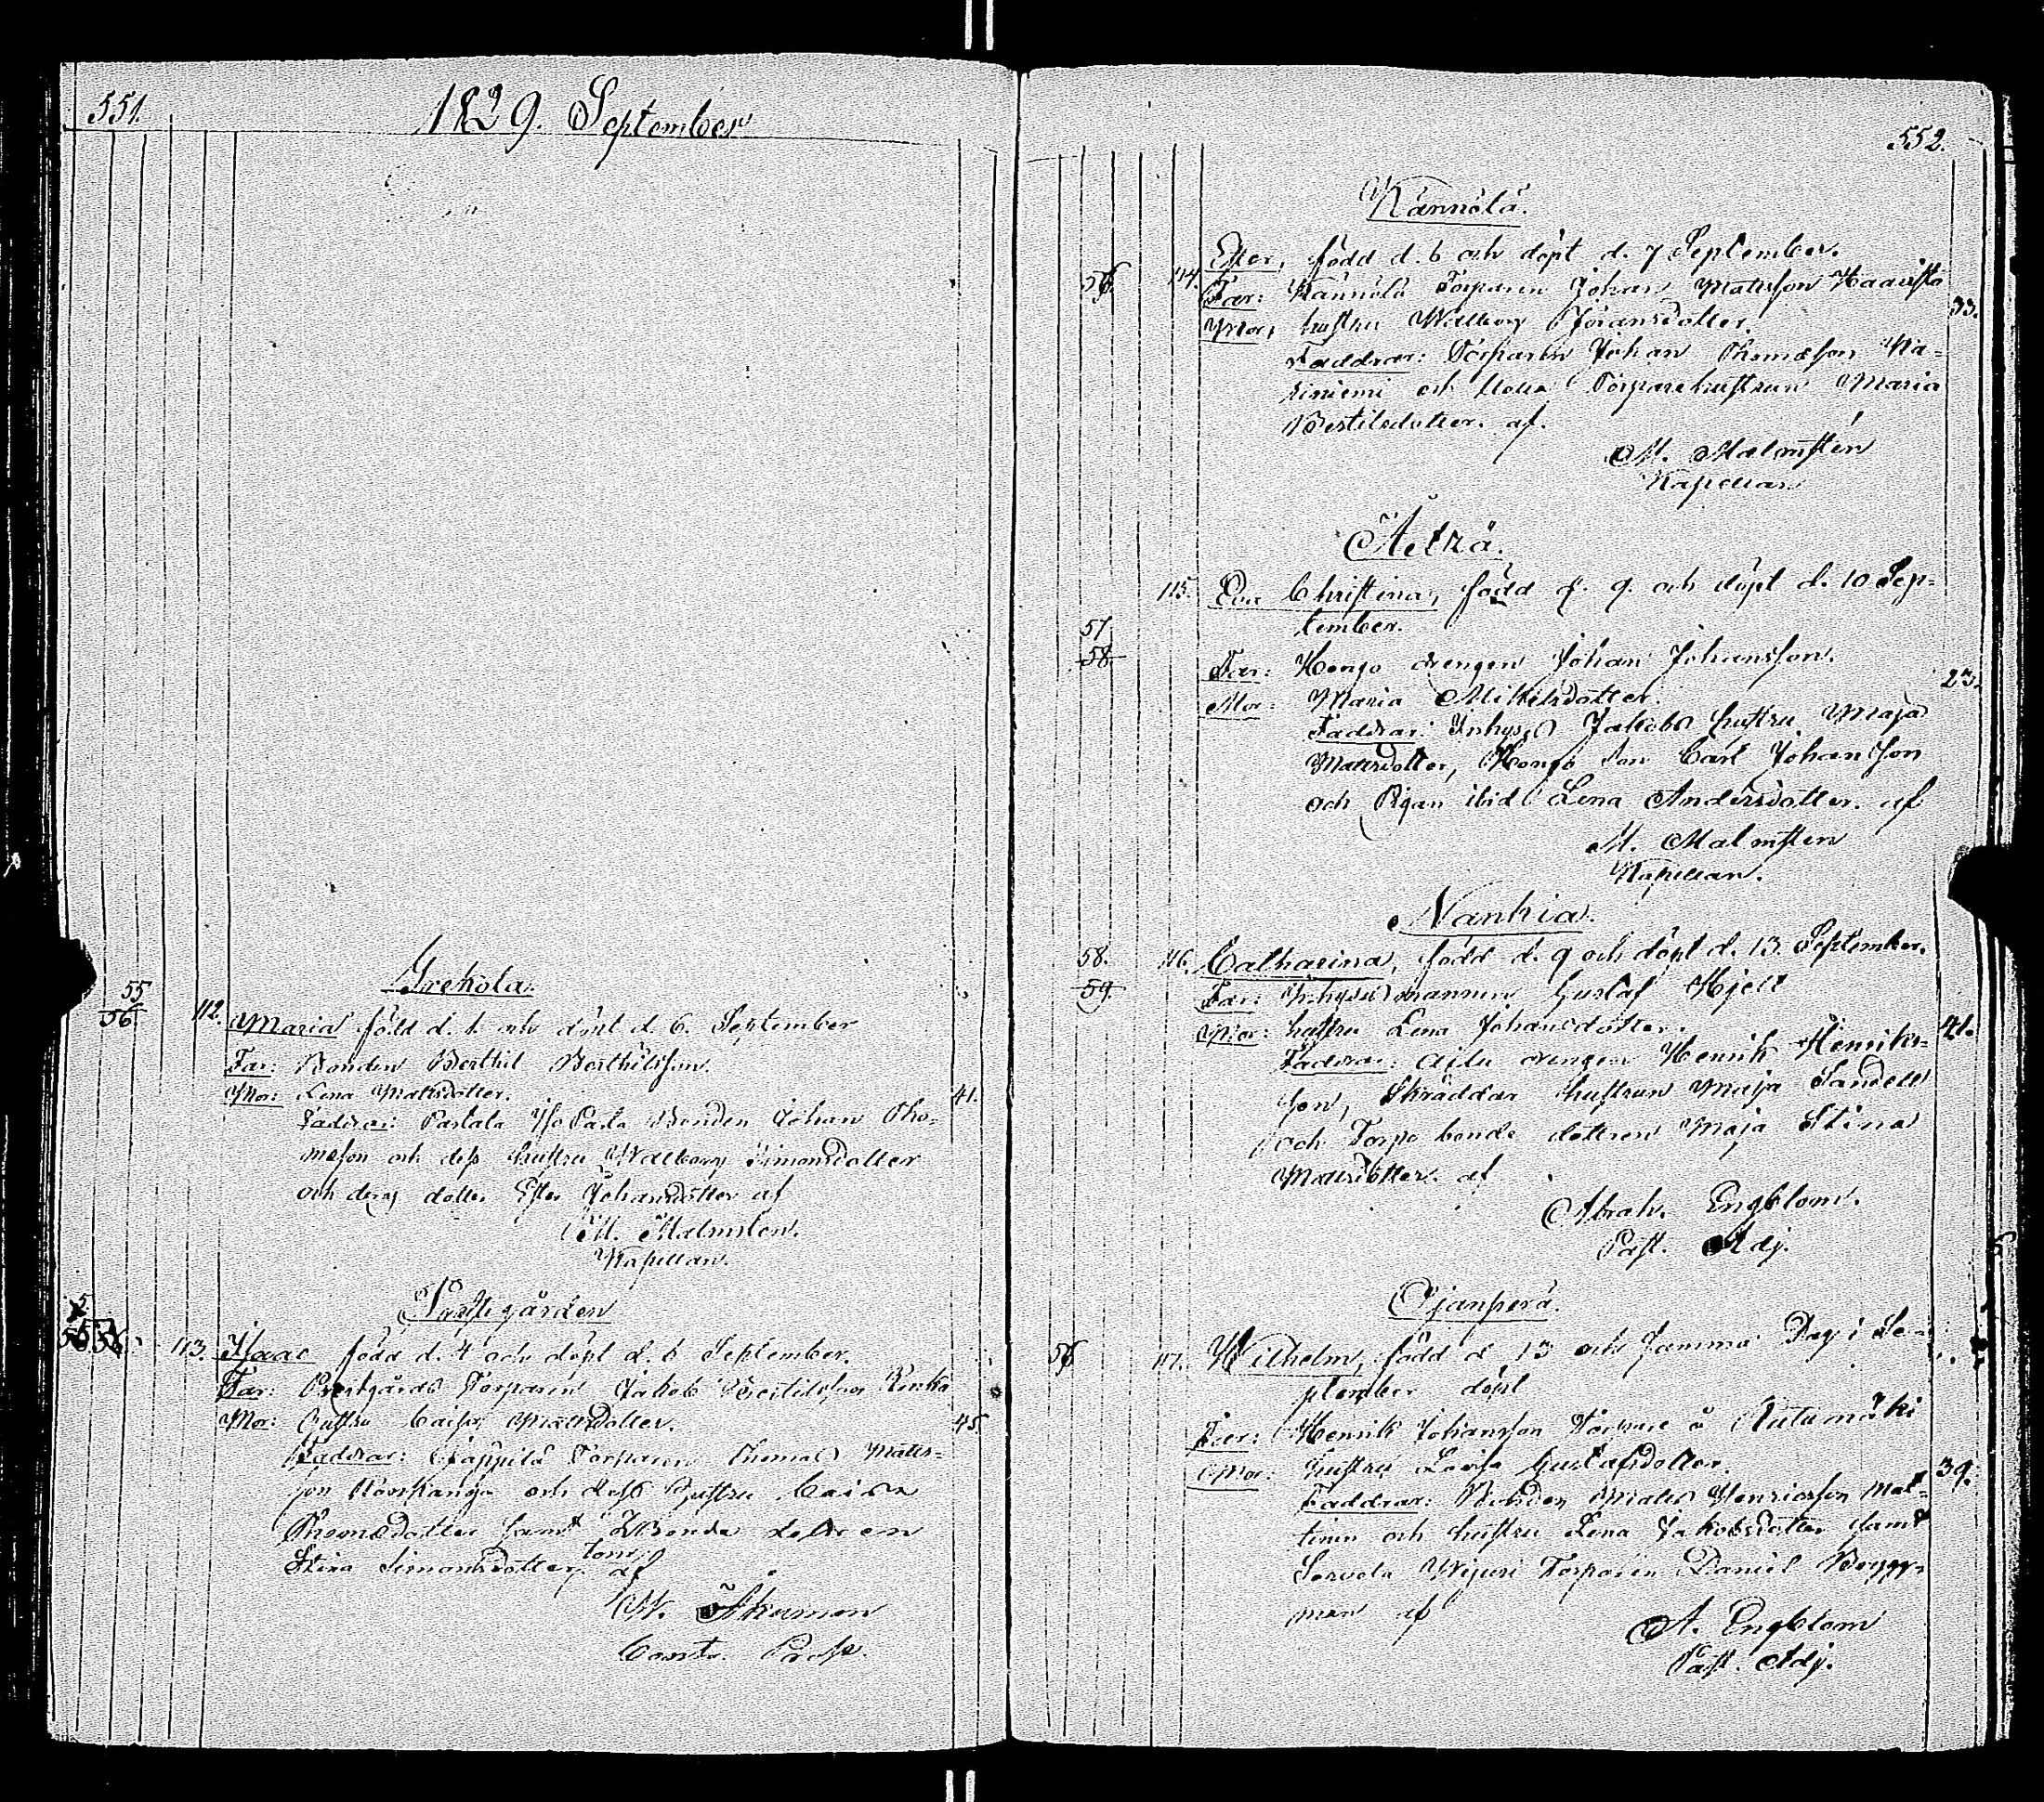 551.
1829. September
Grekola.
55
56.
112. Maria född d. 1. och döpt d. 6. September
Far: Bonden Berthil Berthilsson.
Mor: Lena Mattsdotter.
41.
Faddrar: Pastala Bonden Johan Tho-
masson och dess hustru Walborg Simonsdotter
och deras dotter Ester Johansdotter af
M. Malmsten.
Kapellan.
Prestgården
113. Isaac född d. 4 och döpt d. 6 September.
Far: Prestgårds Torparen Jakob Bertilsson
Mor: Hustru Caisa Mattsdotter.
45.
Faddrar: Torparen Thomas Matts-
son och dess Hustru Caisa
Thomsdotter samt
Stina Simonsdotter af
Contr. Prost.
552.
Kännölä.
Ester, född d. 6 och döpt d. 7 September.
56. 114.
Far: Kännölä Torparen Johan Mattsson Haavisto
33.
Mor, hustru Walborg Göransdotter.
Faddrar: Torparen Johan Thomasson
och Torparehustrun Maria
Bertilsdotter. af.
M. Malmstén
Kapellan
Äeträ.
115. Eva Christina, född d. 9. och döpt d. 10 Sep-
tember.
57.
58.
Far: Hongo drengen Johan Johansson.
23.
Mor: Maria Mikelsdotter.
Faddrar: Inhyses Jakobs hustru Maja
Mattsdotter, Hongo Son Carl Johansson
och Pigan ibid Lena Andersdotter. af
M. Malmsten
Kapellan.
Nankia.
58. 116. Catharina, född d. 9 och döpt d. 13 September.
59.
Far: Inhyses mannen Gustaf Hjelt
Mor: hustru Lena Johansdotter.
41.
Faddrar: drengen Henrik Henriks-
son, Skräddar hustrun Maja Sandell
och Torpo bonde dottren Maja Stina
Mattsdotter. af
Abrah. Engblom.
Past. Adj.
Ojanperä.
56 117. Wilhelm, född d. 13 och samma Dag i Se-
ptember döpt
Far: Henrik Johansson Torpare å Autumäki
Mor: hustru Lovisa Gustafsdotter.
39.
Faddrar: Bonden Matts Henricsson
och hustru Lena Jakobsdotter samt
Sorvola Wijuri Torparen Daniel Bergg-
man af
A. Engblom
Past. Adj.